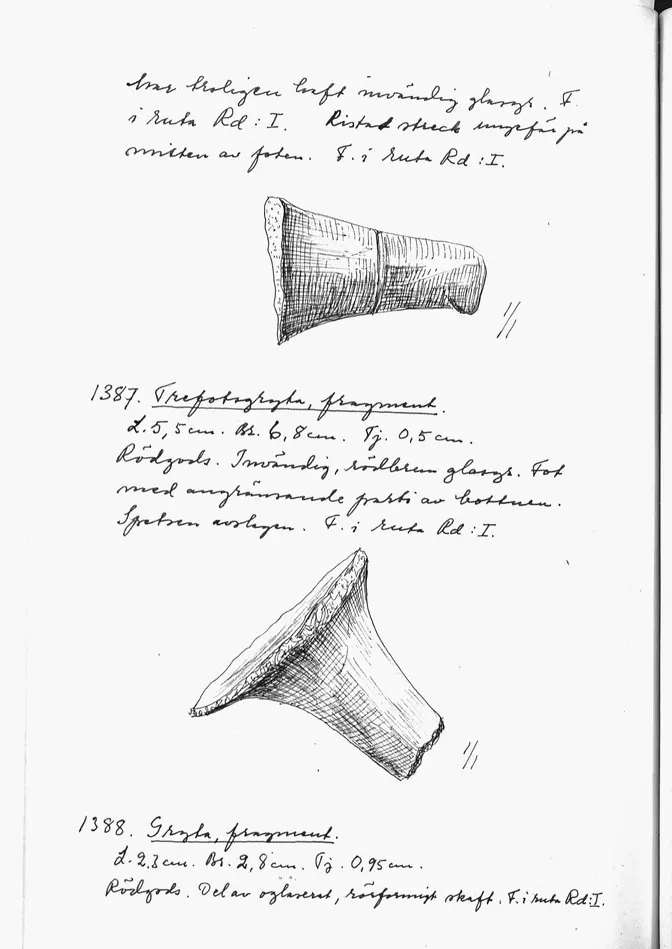 har troligen haft invändig glasyr. F.
i ruta Rd : I. Ristat streck ungefär på
mitten av foten. F. i ruta Rd : I.
1/1
1387. Trefotsgryta, fragment.
L. 5,5 cm. Br. 6,8 cm. Tj. 0,5 cm.
Rödgods. Invändig, rödbrun glasyr. Fot
med angränsande parti av bottnen.
Spetsen avslagen. F. i ruta Rd : I.
1/1
1388. Gryta, fragment.
L. 2,3 cm. Br. 2,8 cm. Tj. 0,95 cm.
Rödgods. Del av oglaserat, rörformigt skaft. F. i ruta Rd : I.